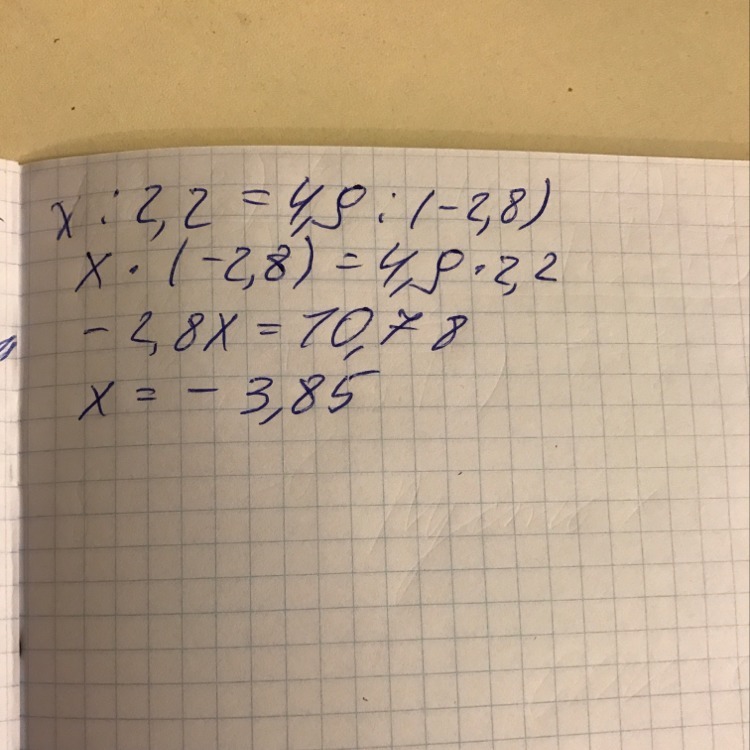 x : 2,2 = 4,9 : (-2,8)
x · (-2,8) = 4,9 · 2,2
- 2,8x = 10,78
x = - 3,85